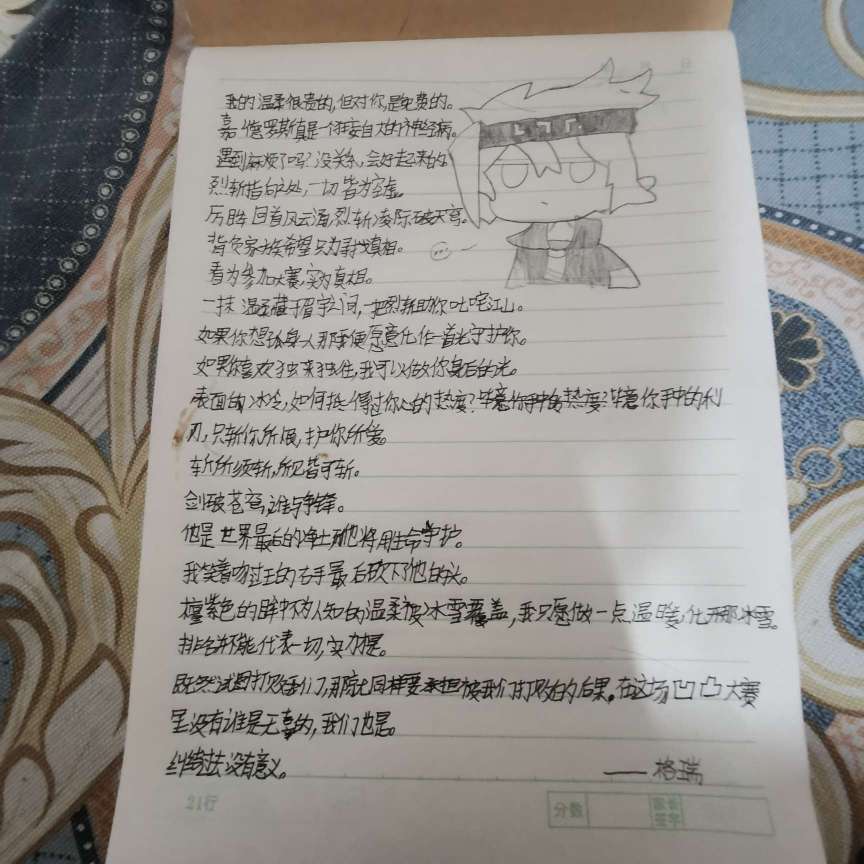 我的温柔很贵的,但对你,是免费的。
嘉德罗斯真是一个狂妄自大的神经病。
遇到麻烦了吗?没关系,会好起来的
烈斩指向之处,一切皆为空虚。
厉胜回首风云涌,烈斩凌际破天穹。
背负家族希望只为寻找真相。
看为参加大赛,实为真相。
一抹温柔藏于眉宇之间,一把烈斩助你叱咤江山。
如果你想孤身一人那我便愿意化作一道光守护你。
如果你喜欢独来独往,我可以做你身后的光。
表面的冰冷,如何抵得过你心的热度?毕竟你手中的热度?毕竟你手中的利
刃,只斩你所恨,护你所爱。
斩所须斩,所见皆可斩。
剑破苍穹,谁与争锋。
他是世界最后的净土而他将用生命守护。
我笑着吻过王的右手最后砍下了他的头。
檀紫色的眸中不为人知的温柔被冰雪覆盖,我只愿做一点温暖,化开那冰雪。
排名并不能代表一切,实力才是。
既然试图打败我们,那就同样要承担被我们打败的后果。在这场凹凸大赛
里没有谁是无辜的,我们也是。
纠结过去没有意义。
——格瑞
21行
分数
家长
签字